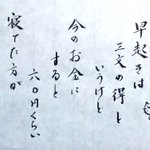 早起きは
三文の得と
いうけど
今のお金に
すると
六〇円くらい
寝てた方が